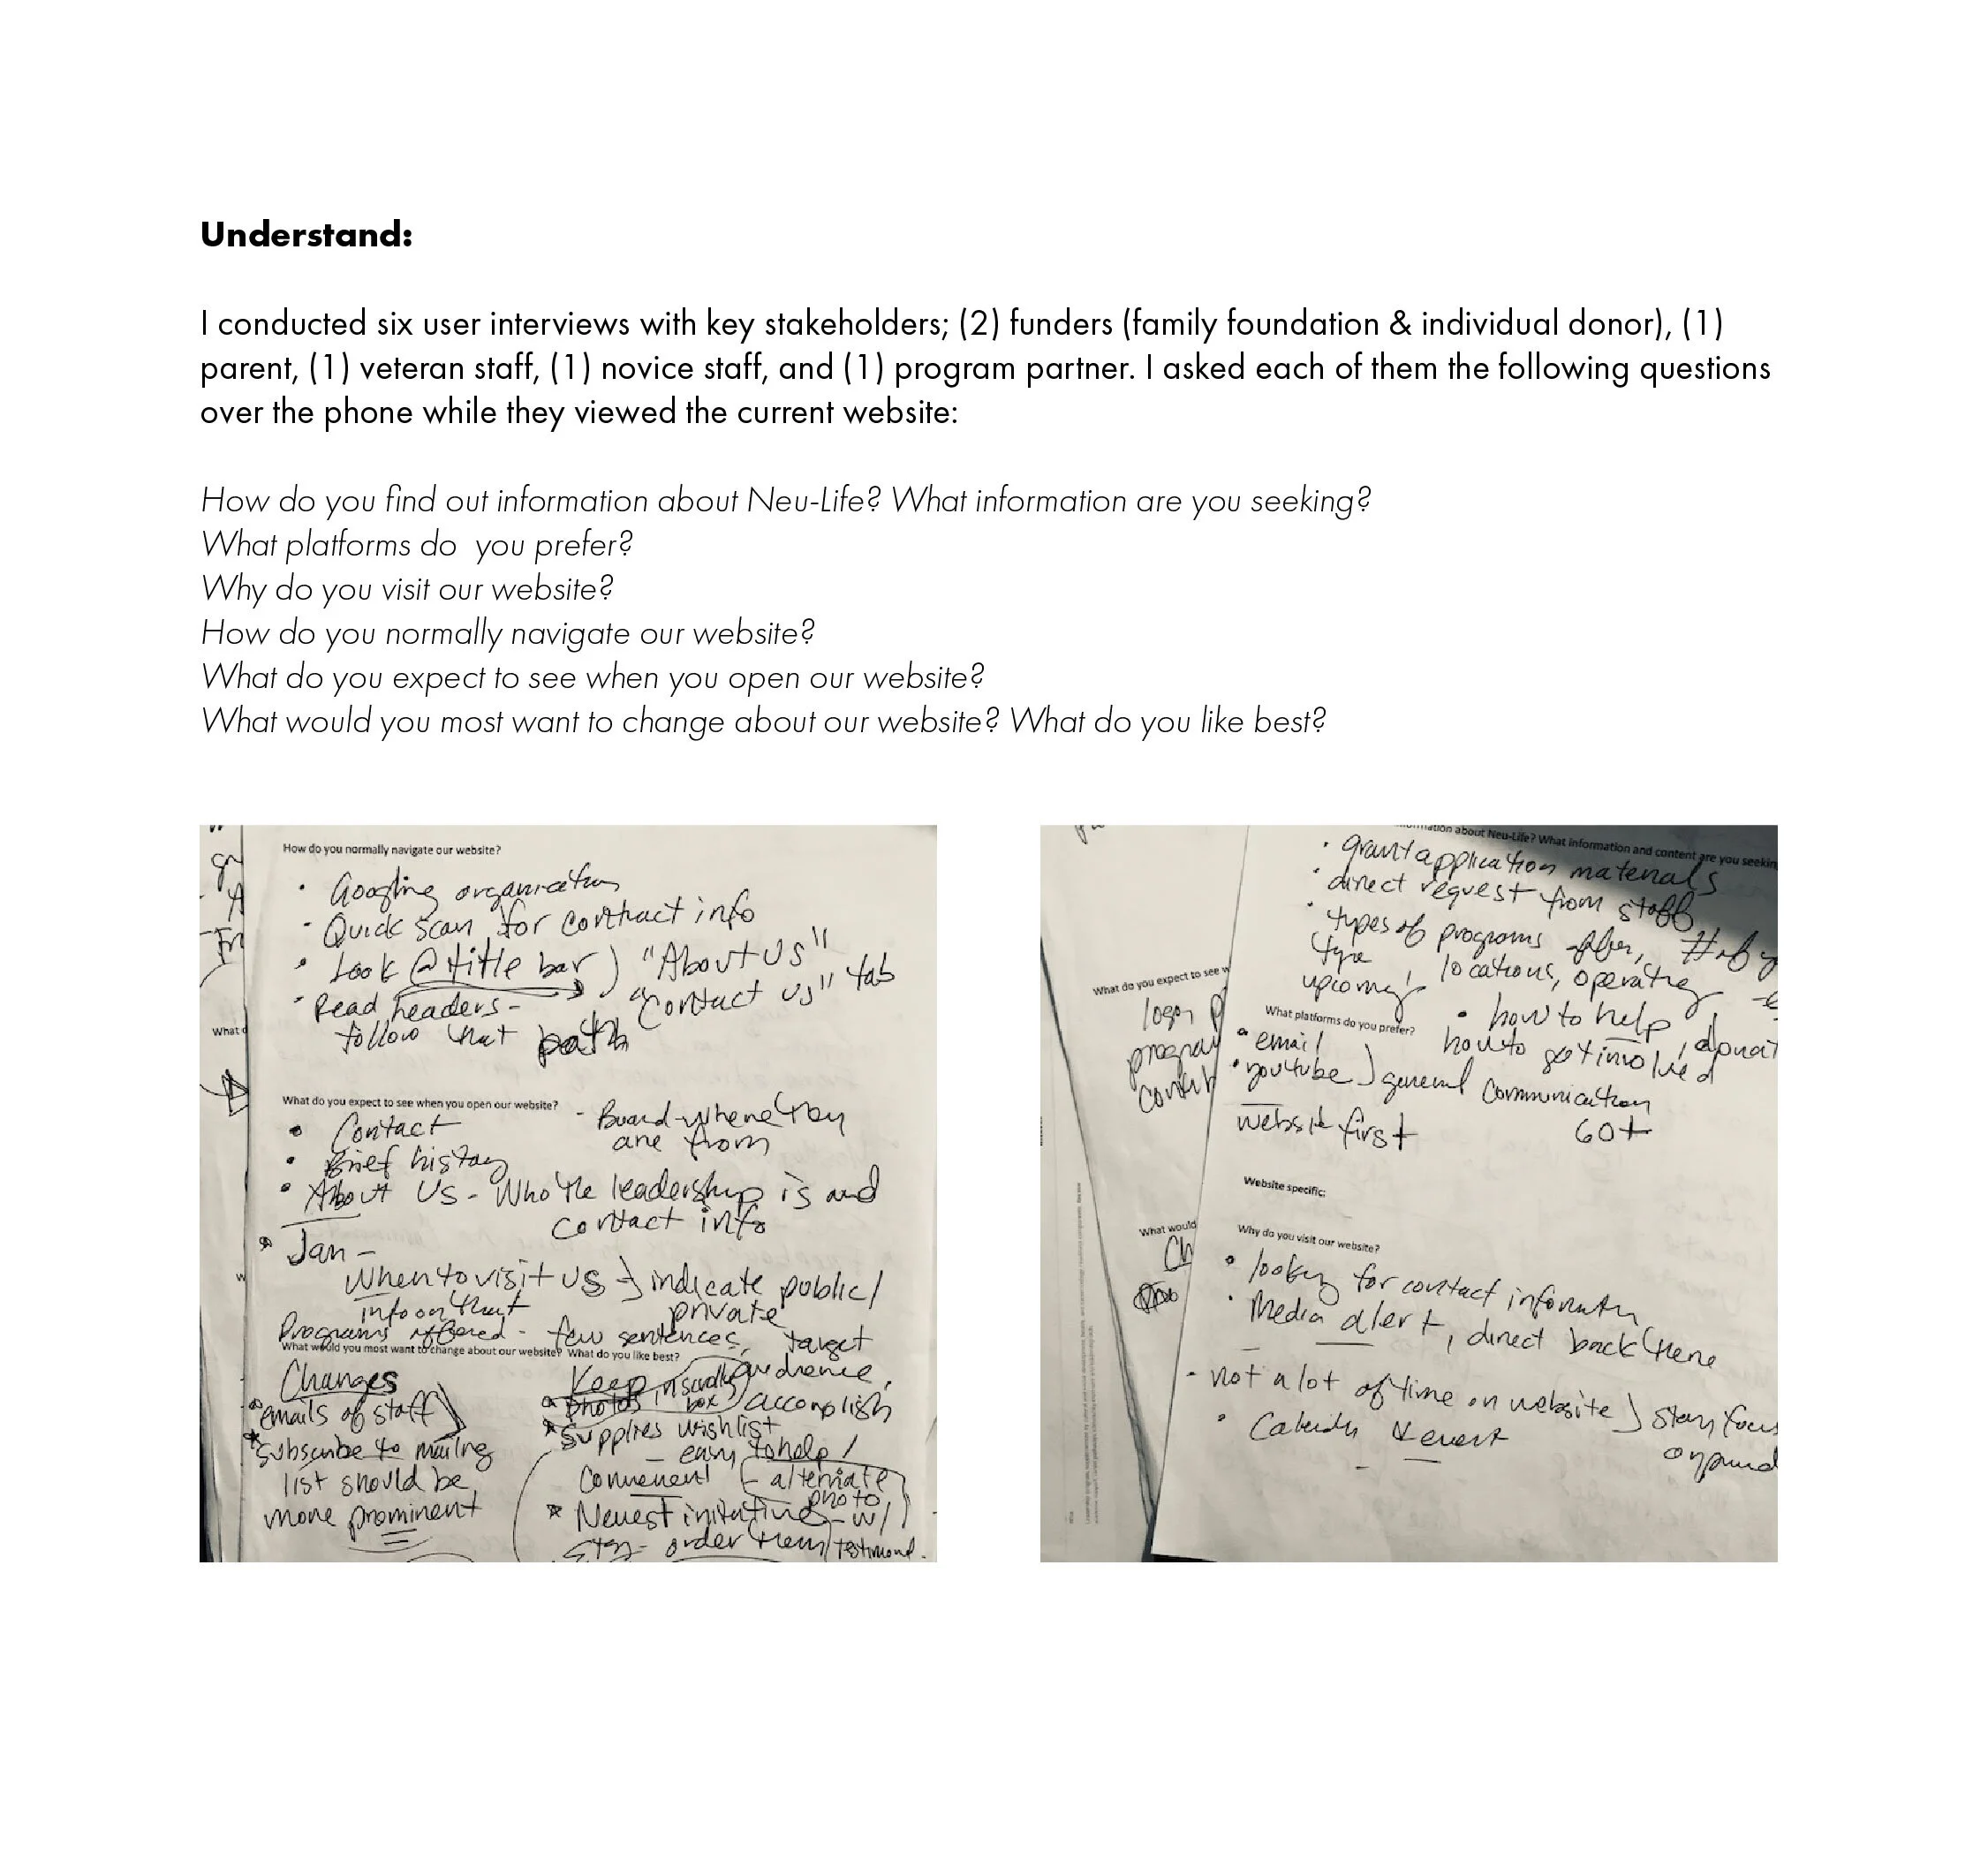 Understand:
I conducted six user interviews with key stakeholders; (2) funders (family foundation & individual donor), (1)
parent, (1) veteran staff, (1) novice staff, and (1) program partner. I asked each of them the following questions
over the phone while they viewed the current website:
How do you find out information about Neu-Life? What information are you seeking?
What platforms do  you prefer?
Why do you visit our website?
How do you normally navigate our website?
What do you expect to see when you open our website?
What would you most want to change about our website? What do you like best?
How do you normally navigate our website?
• Googling organization
• Quick scan for contact info
• Look @ title bar) "About Us"
"Contact Us" tab
• Read headers-
follow that path
What do you expect to see when you open our website?
- Board-where they
are from
• Contact
• Brief history
• About Us - Who the leadership is and
contact info
• Jan -
When to visit us → indicate public/
private
info on that
Programs offered - few sentences, target
audience,
accomplish
What would you most want to change about our website? What do you like best?
Changes
• emails of staff
* subscribe to mailing
list should be
more prominent
Keep
photos in box
* Supplies wishlist
- easy to help /
Convenient
- alternate
photo
* Newest initiative - w/
order them / testimonial
What do you expect to see w
What would
Ch
information about Neu-Life? What information and content are you seekin
• grant application materials
• direct request from staff
• types of programs offer, # of y
type
upcoming, locations, operating
• how to help, donat
how to get involved
What platforms do you prefer?
• email
• youtube ) general communication
website first
60+
Website specific:
Why do you visit our website?
• looking for contact information
• Media alert, direct back there
- not a lot of time on website ) stay focus
• Calendar & event